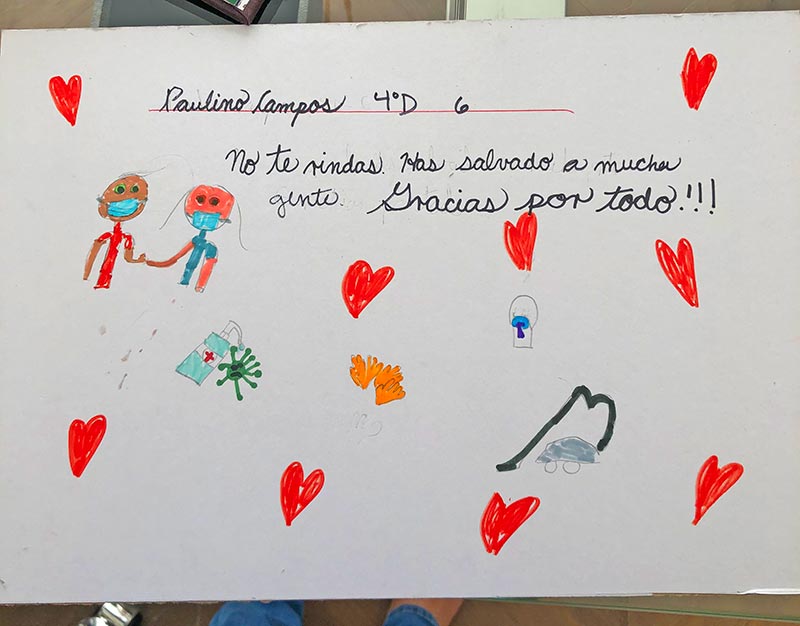 Paulino Campos 4°D 6
No te rindas. Has salvado a mucha
gente. Gracias por todo!!!